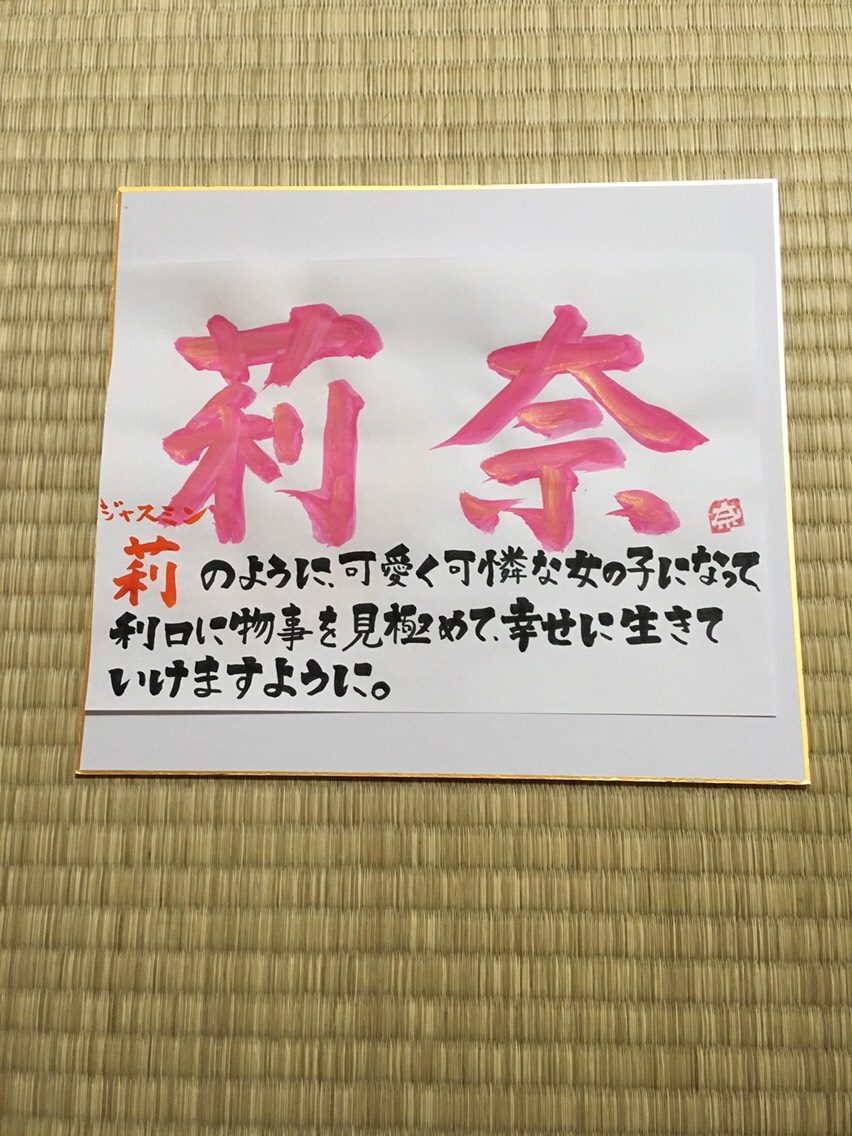 莉奈
ジャスミン
莉のように、可愛く可憐な女の子になって
利口に物事を見極めて、幸せに生きて
いけますように。